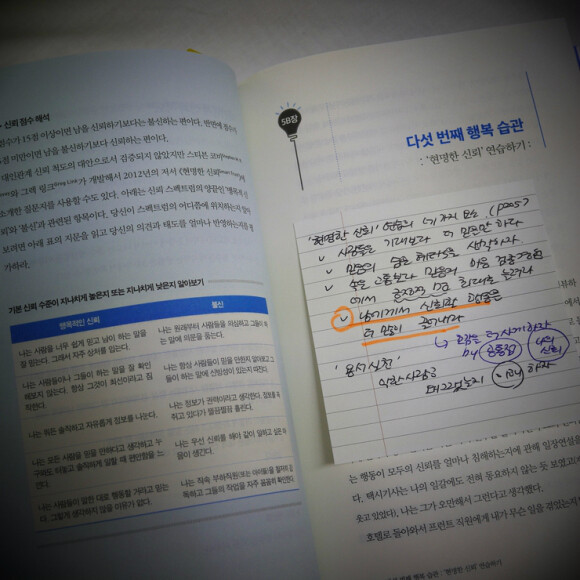 신뢰 점수 해석
점수가 15점 이상이면 남을 신뢰하기보다는 불신하는 편이다. 반면에 점수가
점 미만이면 남을 불신하기보다 신뢰하는 편이다.
대인관계 신뢰 척도의 대안으로서 검증되지 않았지만 스티븐 코비
와 그레그 링크 가 개발해서 2012년의 저서 《현명한 신뢰
소개한 질문지를 사용할 수도 있다. 아래는 신뢰 스펙트럼의 양끝인 '맹목적 신
뢰'와 '불신'과 관련된 항목이다. 당신이 스펙트럼의 어디쯤에 위치하는지 알아
보려면 아래 표의 지문을 읽고 당신의 의견과 태도를 얼마나 반영하는지를 평
가하라.
기본 신뢰 수준이 지나치게 높은지 또는 지나치게 낮은지 알아보기
맹목적인 신뢰
불신
나는 사람을 너무 쉽게 믿고 남이 하는 말을
잘 믿는다. 그래서 자주 상처를 입는다.
나는 원래부터 사람들을 의심하고 그들이 하
는 말에 의문을 품는다.
나는 사람들이나 그들이 하는 일을 잘 확인
해보지 않는다. 항상 그것이 최선이라고 짐
작한다.
나는 항상 사람들이 믿을 만한지 알아보고 그
들이 하는 말에 신빙성이 있는지 따진다.
나는 뭐든 솔직하고 자유롭게 정보를 나눈다.
나는 정보가 권력이라고 생각한다. 정보를 움
켜쥐고 있다가 찔끔찔끔 흘린다.
나는 모든 사람을 믿을 만하다고 생각하고 누
구와도 터놓고 솔직하게 일할 때 편안함을 느
낀다.
나는 우선 신뢰를 해야 같이 일하고 싶은 마
음이 생긴다.
나는 사람들이 말한 대로 행동할 거라고 믿는
다. 그렇게 생각하지 않을 이유가 없다.
나는 직속 부하직원(또는 아이들)을 철저히 감
독하고 그들의 작업을 자주 꼼꼼히 확인한다.
5B장
다섯 번째 행복 습관
: '현명한 신뢰' 연습하기 :
'현명한 신뢰' 연습의 네 가지 요소
사람들을 기대보다 더 믿을만 하다
믿음의 숨은 혜택을 생각하자
속은 고통보다 믿음의
남에게서 신뢰할 만함을
더 많이 끌어내라
by 긍정
나의
신뢰
'용서 실천'
는 행동이 모두의 신뢰를 얼마나 침해하는지에 관해 일장연설을
다. 택시기사는 나의 일갈에도 전혀 동요하지 않는 듯 보였고
웃고 있었다), 나는 그가 오만해서 그런다고 생각했다.
호텔로 돌아와서 프런트 직원에게 내가 무슨 일을 겪었는지
번째 행복 습관 : '현명한 신뢰' 연습하기